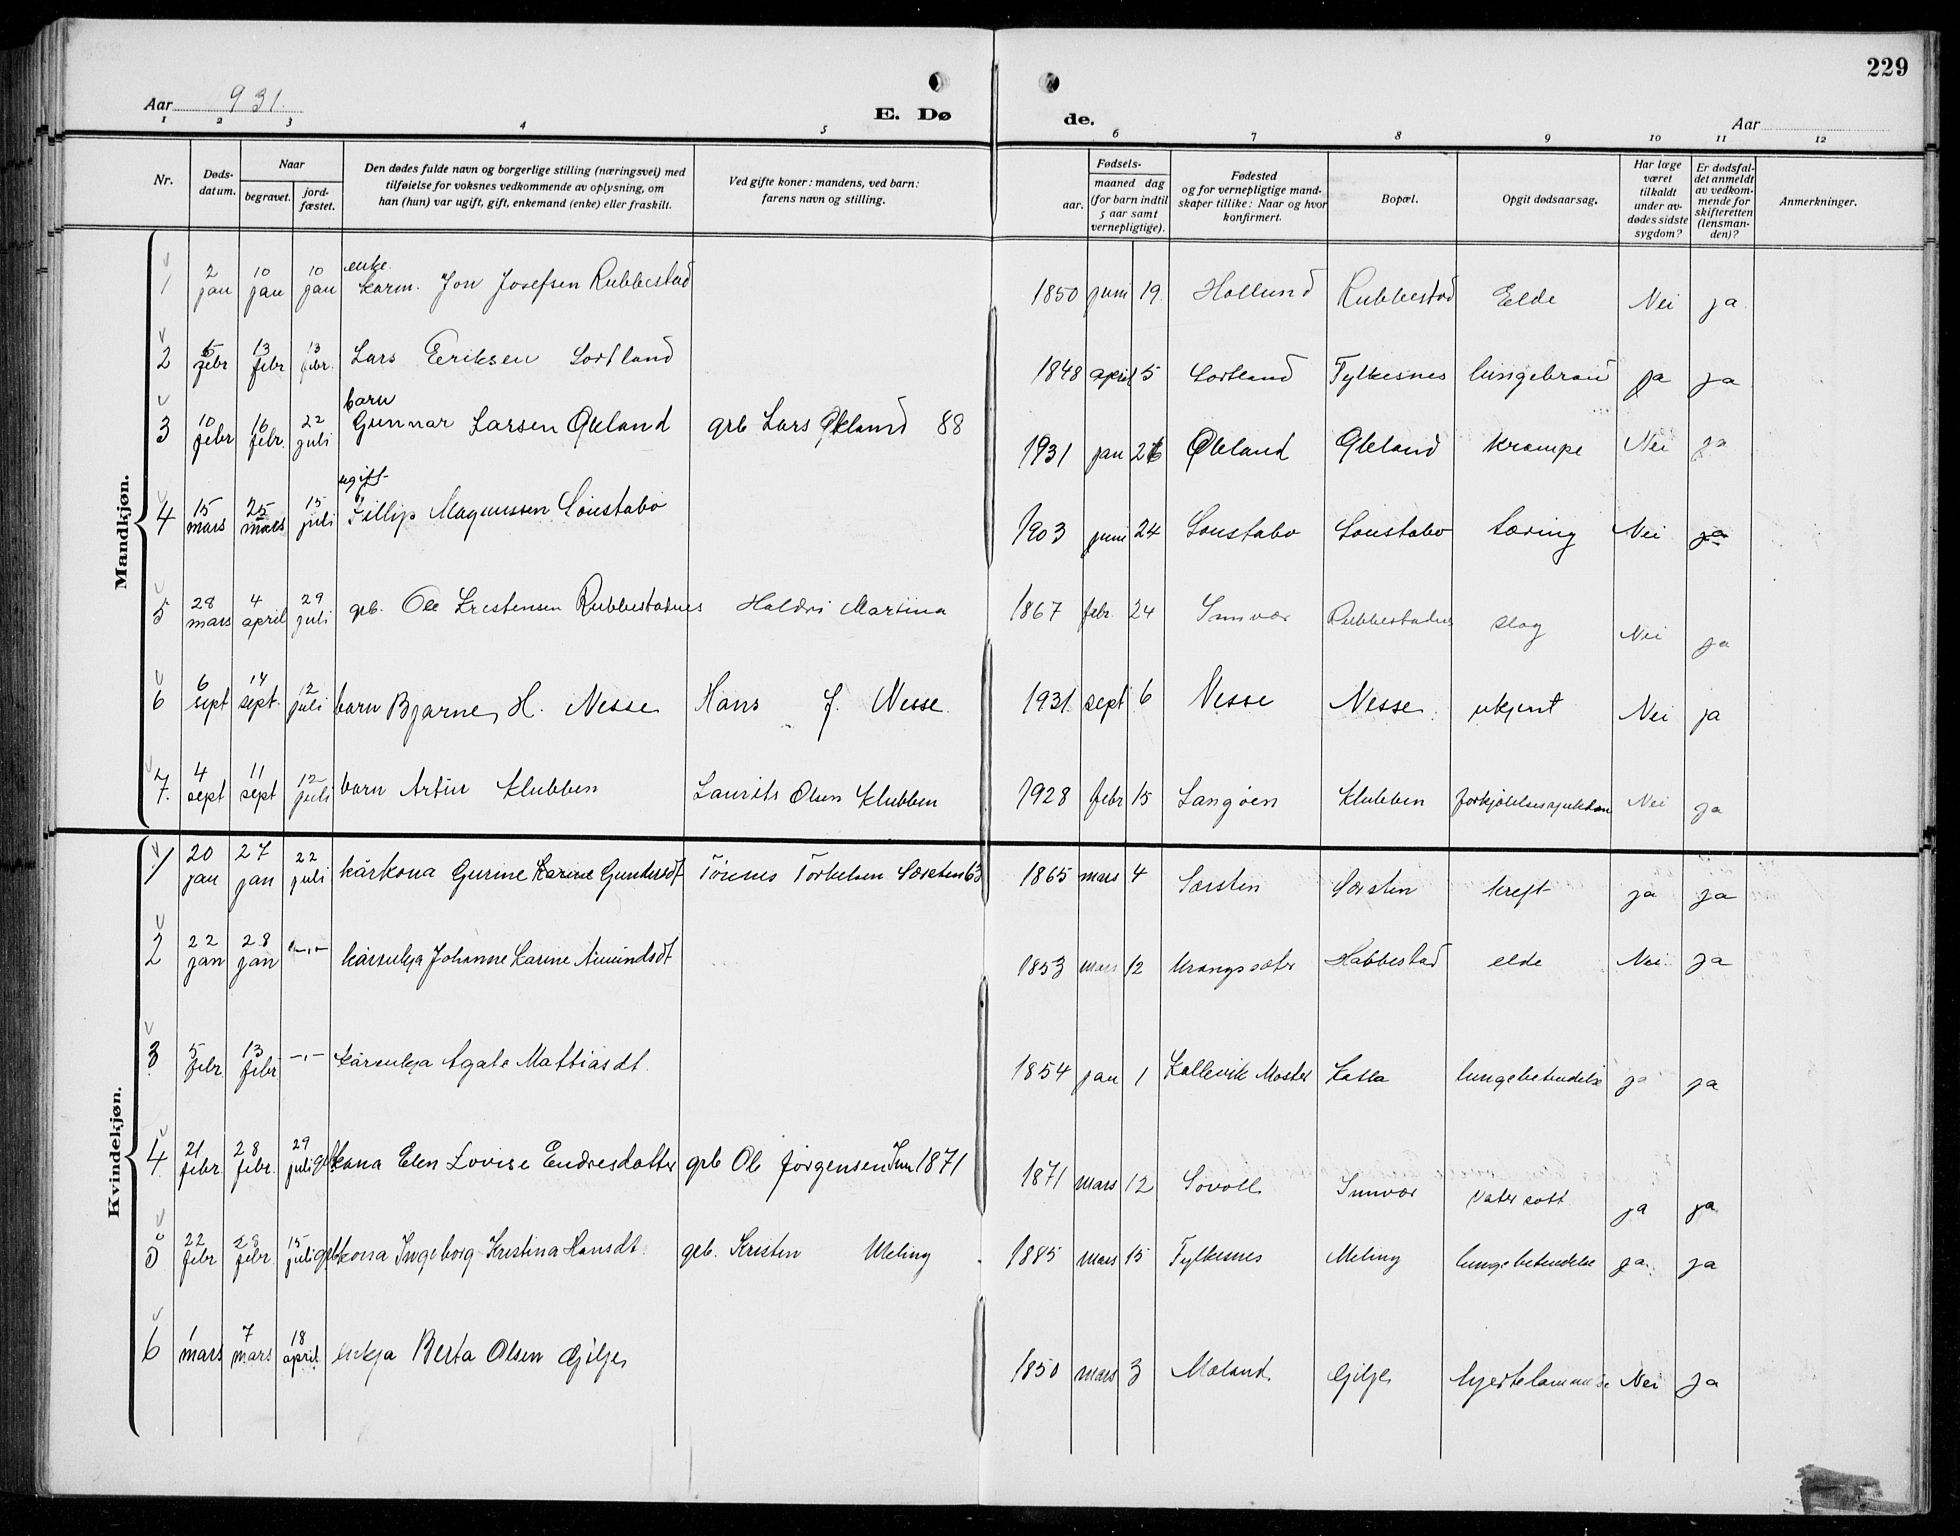 229
Aar 1931.
E. Døde.
Aar
1 2 3 4 5 6 7 8 9 10 11 12
Nr.
Døds-
datum.
Naar
begravet.
jord-
fæstet.
Den dødes fulde navn og borgerlige stilling (næringsvei) med
tilføielse for voksnes vedkommende av oplysning, om
han (hun) var ugift, gift, enkemand (enke) eller fraskilt.
Ved gifte koner: mandens, ved barn:
farens navn og stilling.
Fødsels-
aar.
maaned dag
(for barn indtil
5 aar samt
vernepligtige).
Fødested
og for vernepligtige mand-
skaper tillike: Naar og hvor
konfirmert.
Bopæl.
Opgit dødsaarsag.
Har læge
været
tilkaldt
under av-
dødes sidste
sygdom?
Er dødsfal-
det anmeldt
av vedkom-
mende for
skifteretten
(lensman-
den)?
Anmerkninger.
Mandkjøn.
1 2 jan 10 jan 10 jan enke karm. Jon Josefsen Rubbestad 1850 juni 19. Hollund Rubbestad Elde Nei ja
2 5 febr 13 febr 13 febr. Lars Eeriksen Sortland 1848 april 5 Sortland Fylkesnes lungebrand ja ja
3 10 febr 16 febr. 22 juli barn Gunnar Larsen Økland grb Lars Økland 88 1931 jan 26 Økland Økland krampe Nei ja
4 15 mars 25 mars 15 juli ugift Fillip Magnussen Sonstabo 1903 juni 24 Sonstabo Sonstabo tæring Nei ja
5 28 mars 4 april 29 juli grb. Ole Kristensen Rubbestadnes Haldri Martina 1867 febr. 24 Innvær Rubbestadnes slag Nei ja
6 6 sept 14 sept. 12 juli barn Bjarne H. Nesse Hans J. Nesse 1931. sept 6 Nesse Nesse ukjent Nei ja
7. 4 sept 11 sept 12 juli barn Artur Klubben Laurits Olsen Klubben 1928 febr 15 Langøen Klubben forkjølelsessjukdom Nei ja
Kvindekjøn.
1 20 jan 27 jan 22 juli kårkona Gurine Karine Gundersdt Tönnes Torkelsen Særsten 63 1865 mars 4 Særsten Særsten kreft ja ja
2 22 jan 28 jan -,- kårenkja Johanne Karine Amundsdt 1853 mars 12 Vrangssæter Habbestad elde Nei ja
3 5 febr. 13 febr -,- kårenkja Agate Mattiasdt. 1854 jan 1 Kallevik Moster Katla lungebetendelse ja ja
4 21 febr. 28 febr. 29 juli gbkona Elen Lovise Endresdatter grb Ole Jørgensen Inn 1871 1871 mars 12 Sovoll Innvær vatersott ja ja
5 22 febr 28 febr 15 juli gbkona Ingeborg Kristina Hansdt. grb. Kristen Meling 1885 mars 15 Fylkesnes Meling lungebetendelse ja ja
6 1 mars 7 mars 18 april enkja Berta Olsen Gilje 1850 mars 3 Mæland. Gilje hjertelammelse Nei ja